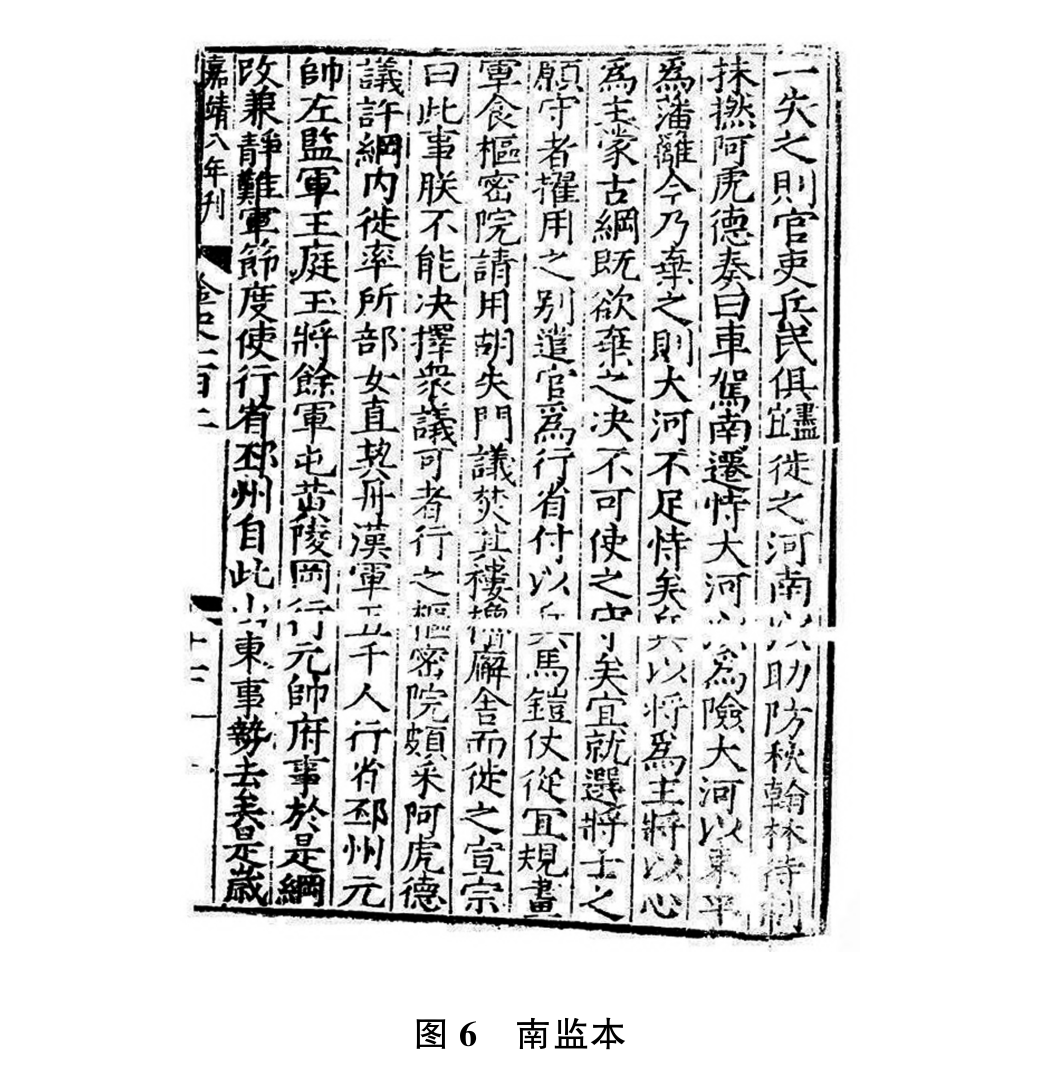 一失之則官吏兵民俱盡宜徙之河南以助防秋翰林待制
抹撚阿虎德奏曰車駕南遷恃大河以為險大河以東平
為藩籬今乃棄之則大河不足恃矣兵以將爲主將以心
爲主蒙古綱既欲棄之决不可使之守矣宜就選將士之
願守者擢用之别遣官爲行省付以兵馬鎧仗從冝規畫
軍食樞密院請用胡失門議焚其樓櫓廨舎而徙之宣宗
曰此事朕不能决擇衆議可者行之樞密院頗采阿虎德
議許綱内徙率所部女直契丹漢軍五千人行省邳州元
帥左監軍王庭玉將餘軍屯黄陵岡行元帥府事於是綱
改兼靜難軍節度使行省邳州自此山東事勢去矣是歳
嘉靖八年刊
金史一百二
图 6 南监本